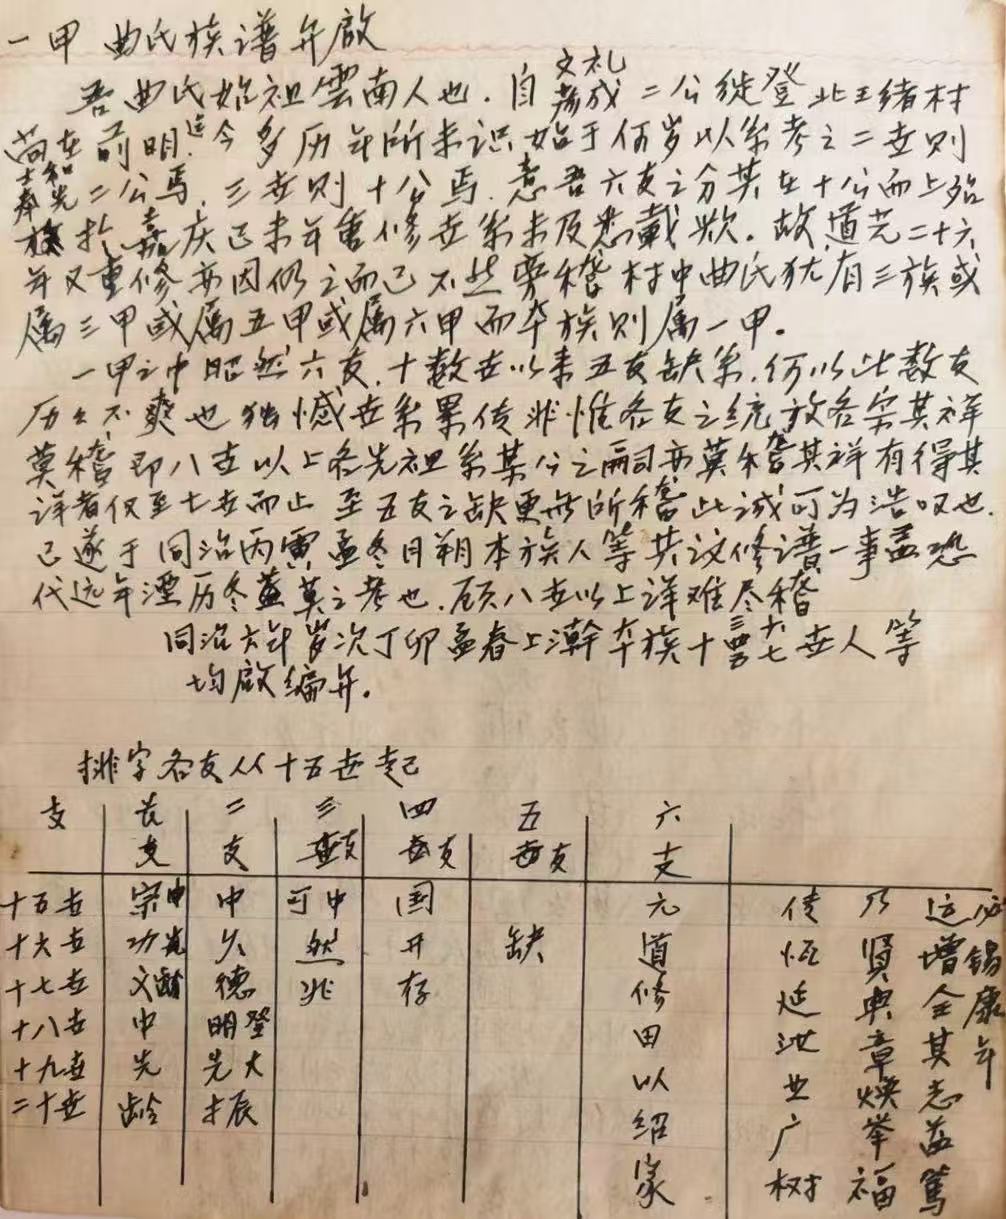 一甲 曲氏族谱弁啟
吾曲氏始祖雲南人也．自文礼 二公徙登北王绪村
尚在前明．迄今多历年所未识始于何岁以系考之二世则
士奉 和先 二公焉．三世则十公焉．意吾六支之分其在十公而上殆
族于嘉庆己未年重修世系未及悉载欤．故道光二十六
年又重修亦因仍之而已不然旁稽村中曲氏犹有三族或
属三甲或属五甲或属六甲而本族则属一甲．
一甲之中昭然六支．十数世以来五支缺系．何以此数支
历历不爽也独憾世系累传非惟各支之统放各宗其祥
莫稽即八世以上各先祖系某公之嗣亦莫稽其祥有得其
详者仅至七世而止 至五支之缺更无所稽此诚可为浩叹也．
己遂于同治丙寅孟冬月朔本族人等共议修谱一事盖恐
代远年湮历冬盖莫之考也．顾八世以上详难尽稽
同治六年岁次丁卯孟春上澣本族十三四五六七世人等
均啟编弁．
排字各支从十五世起
支 长支 二支 三世支 四世支 五世支 六支
十五世 宗申 中 可中 国 元
十六世 功先 久 然 开 缺 道
十七世 文龄 德 兆 存 修
十八世 中 明登 田
十九世 先 先大 以
二十世 龄 振 绍
家
传恒延世业广树
乃賢典章焕举福
远增全其志益篤
必锡康年